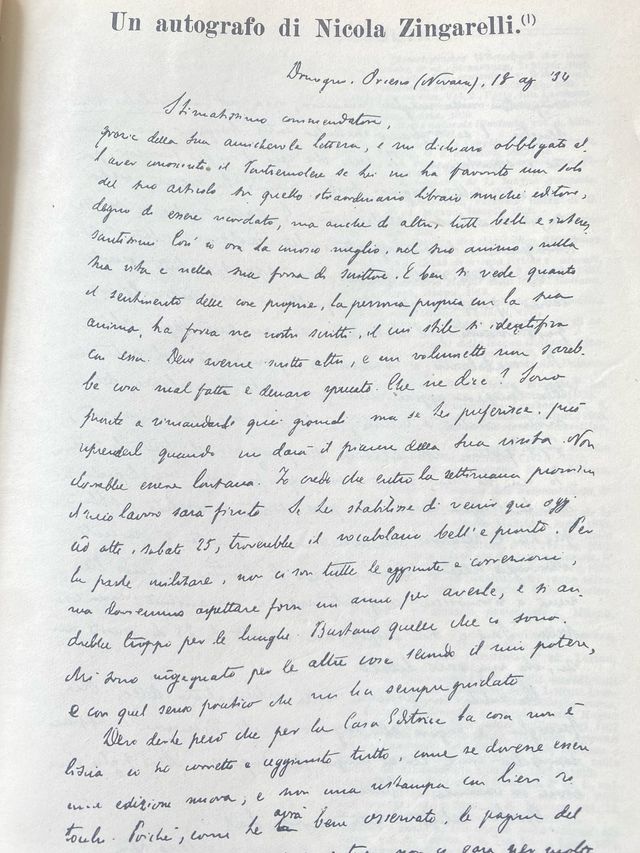 Un autografo di Nicola Zingarelli.(1)
Orcesco (Novara), 18 ag '34
Stimatissimo commendatore,
grazie della sua amichevole lettera, e mi dichiaro obbligato al
l'aver conosciuto il se lei mi ha favorito non solo
del suo articolo su quello straordinario libraio nonchè editore,
degno di essere ricordato, ma anche di altri, tutti belli e interes
santissimi Così io ora La conosco meglio, nel suo animo, nella
sua vita e nella sua forza di scrittore. E ben si vede quanto
il sentimento delle cose proprie, la persona propria con la sua
anima, ha forza nei nostri scritti, il cui stile si identifica
con essa. Deve averne scritto altri, e un volumetto non sareb-
be cosa mal fatta e denaro sprecato. Che ne dice? Sono
pronto a rimandarle quei giornali ma se Lei preferisce, può
riprenderli quando mi darà il piacere della Sua visita. Non
dovrebbe essere lontana. Io credo che entro la settimana prossima
il mio lavoro sarà finito Se Lei stabilisse di venir qua oggi
ad otto, sabato 25, troverebbe il vocabolario bell'e pronto. Per
la parte militare, non ci son tutte le aggiunte e correzioni,
ma dovremmo aspettare forse un anno per averle, e si an-
drebbe troppo per le lunghe. Bastano quelle che ci sono.
Mi sono ingegnato per le altre cose secondo il mio potere,
e con quel senso pratico che mi ha sempre guidato
Devo dirle però che per la Casa Editrice la cosa non è
liscia io ho corretto e aggiunto tutto, come se dovesse essere
una edizione nuova, e non una ristampa con lievi ri
tocchi. Poichè, come Ella avrà bene osservato, le pagine del